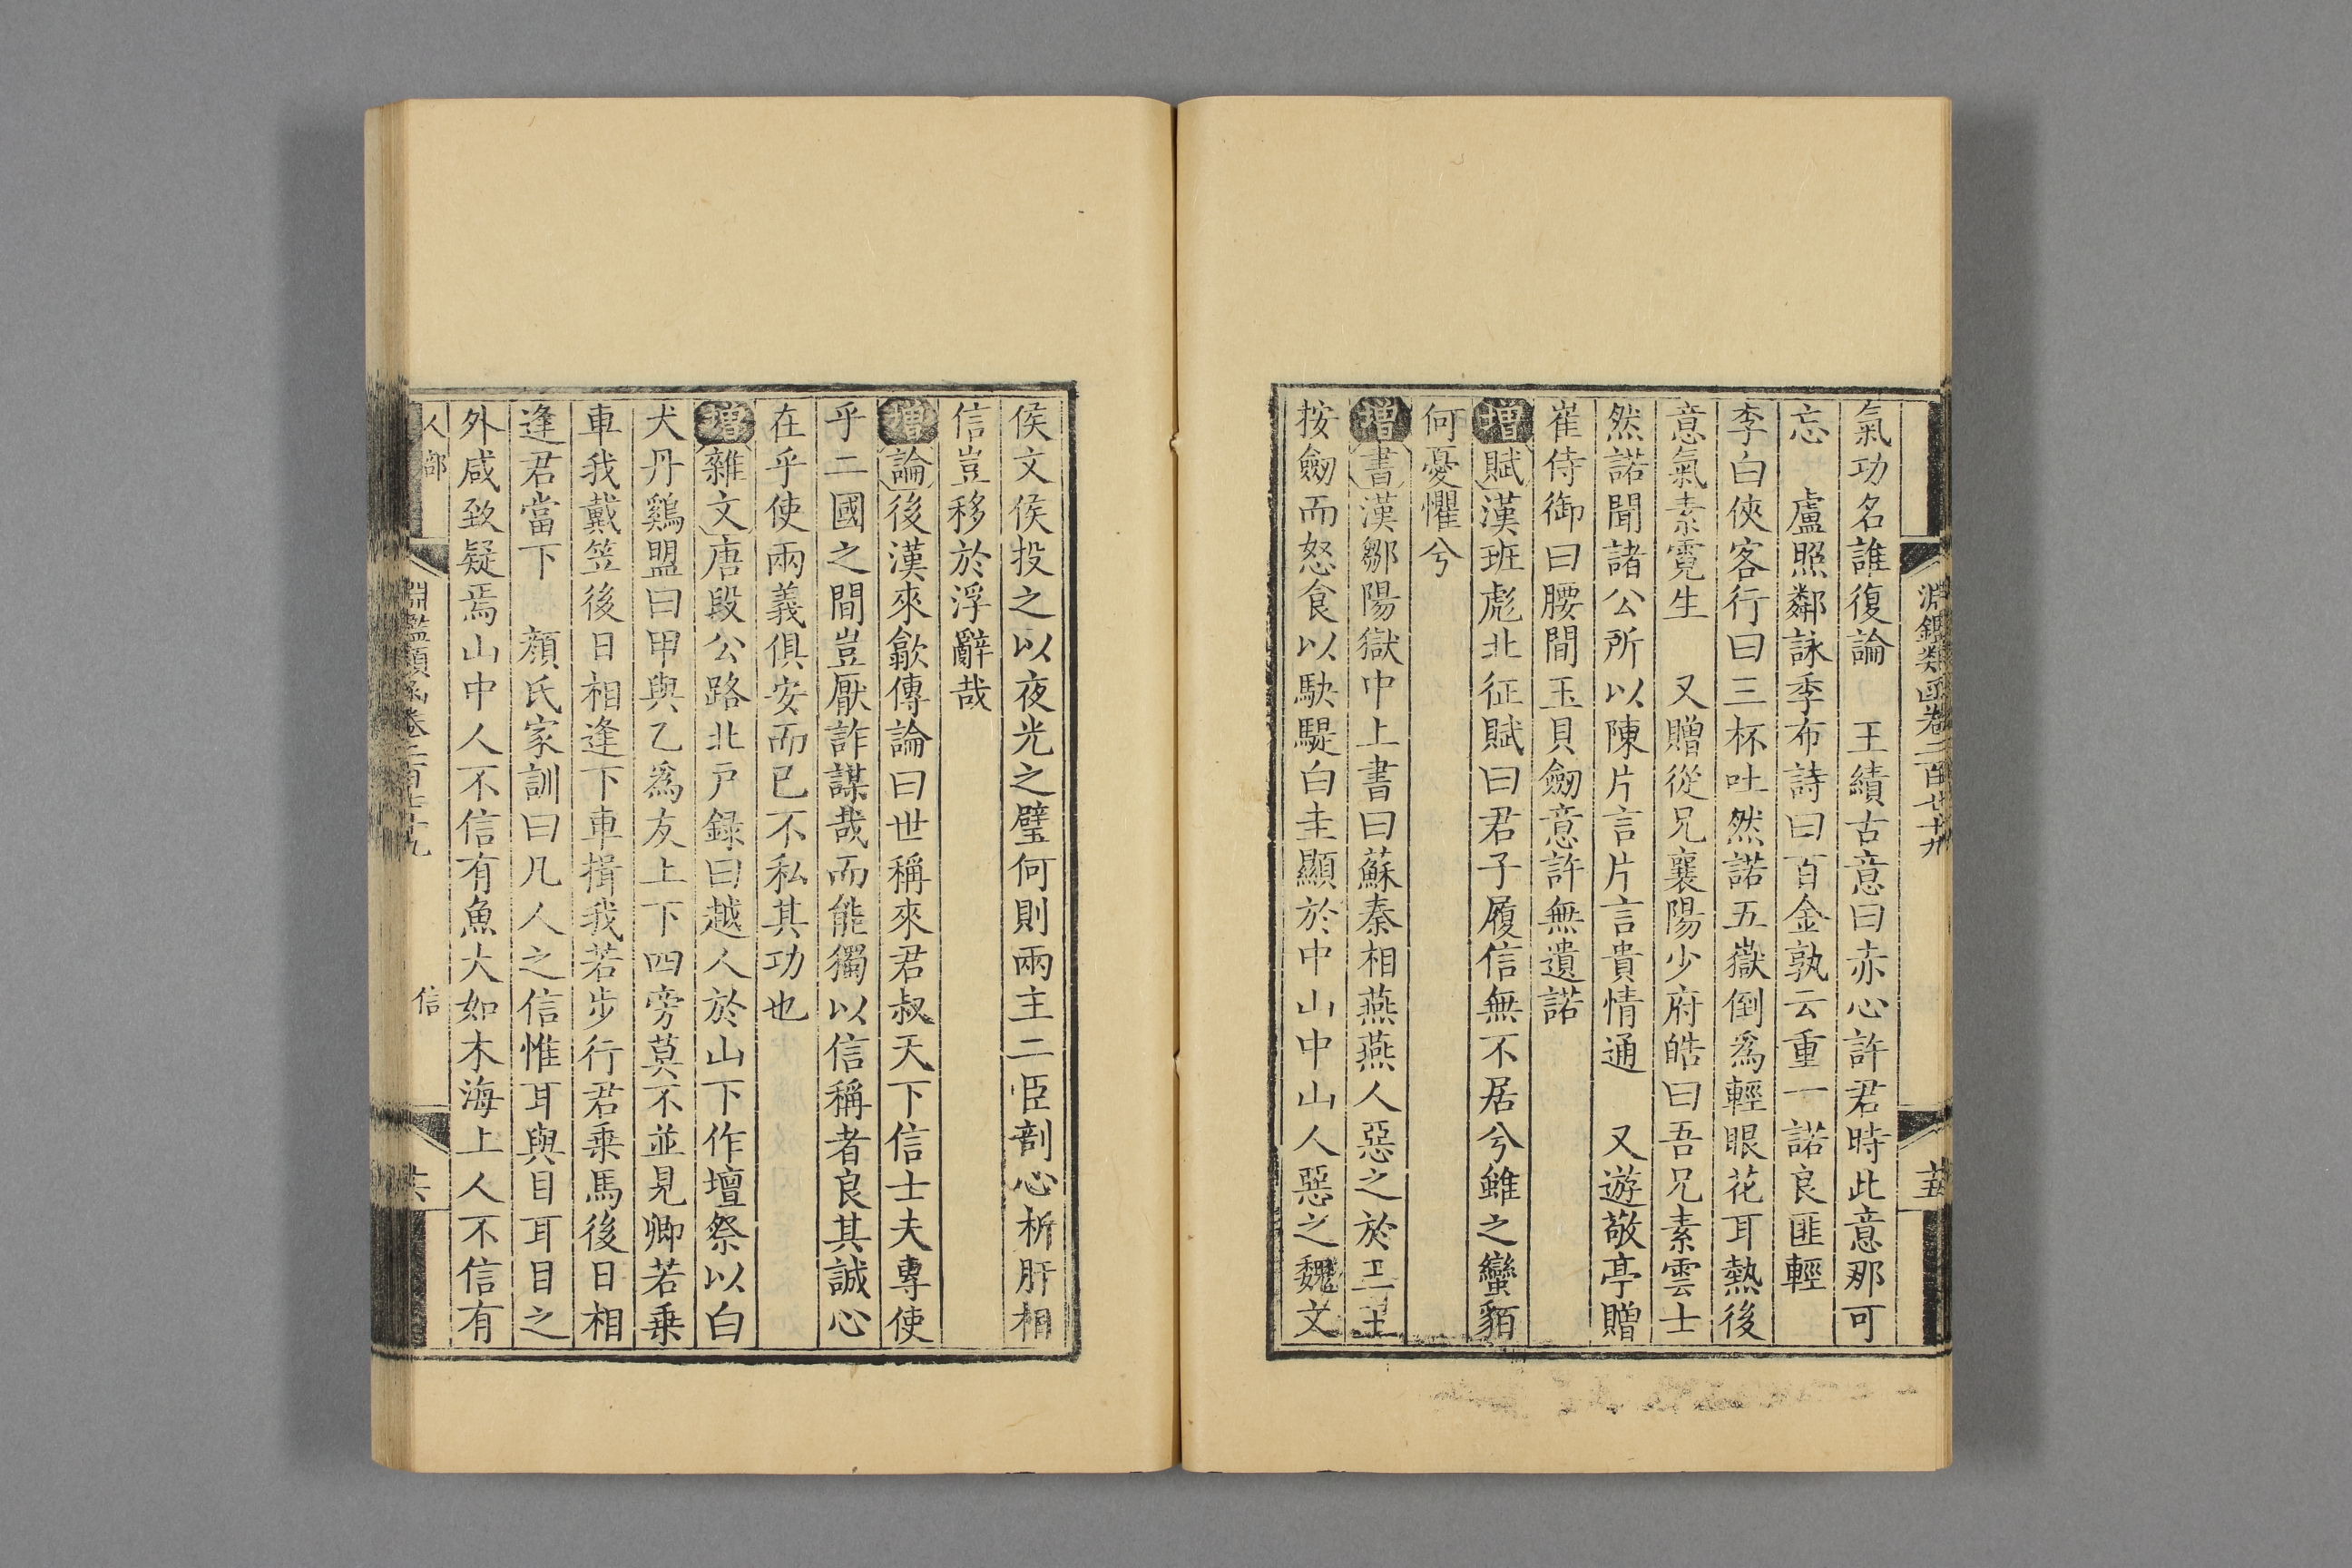 淵鑑類函卷二百七十九
十五
氣功名誰復論　王績古意曰赤心許君時此意那可
忘　盧照鄰詠季布詩曰百金孰云重一諾良匪輕
李白俠客行曰三杯吐然諾五嶽倒爲輕眼花耳熱後
意氣素霓生　又贈從兄襄陽少府皓曰吾兄素雲士
然諾聞諸公所以陳片言片言貴情通　又遊敬亭贈
崔侍御曰腰間玉貝劒意許無遺諾
增賦漢班彪北征賦曰君子履信無不居兮雖之蠻貊
何憂懼兮
增書漢鄒陽獄中上書曰蘇秦相燕燕人惡之於王王
按劒而怒食以駃騠白圭顯於中山中山人惡之魏文
侯文侯投之以夜光之璧何則兩主二臣剖心析肝相
信豈移於浮辭哉
增論後漢來歙傳論曰世稱來君叔天下信士夫專使
乎二國之間豈厭詐謀哉而能獨以信稱者良其誠心
在乎使兩義俱安而已不私其功也
增雜文唐段公路北戸録曰越人於山下作壇祭以白
犬丹鷄盟曰甲與乙爲友上下四旁莫不並見卿若乗
車我戴笠後日相逢下車揖我若步行君乗馬後日相
逢君當下　顏氏家訓曰凡人之信惟耳與目耳目之
外咸致疑焉山中人不信有魚大如木海上人不信有
人部
淵鑑類函卷二百七十九
信
十六